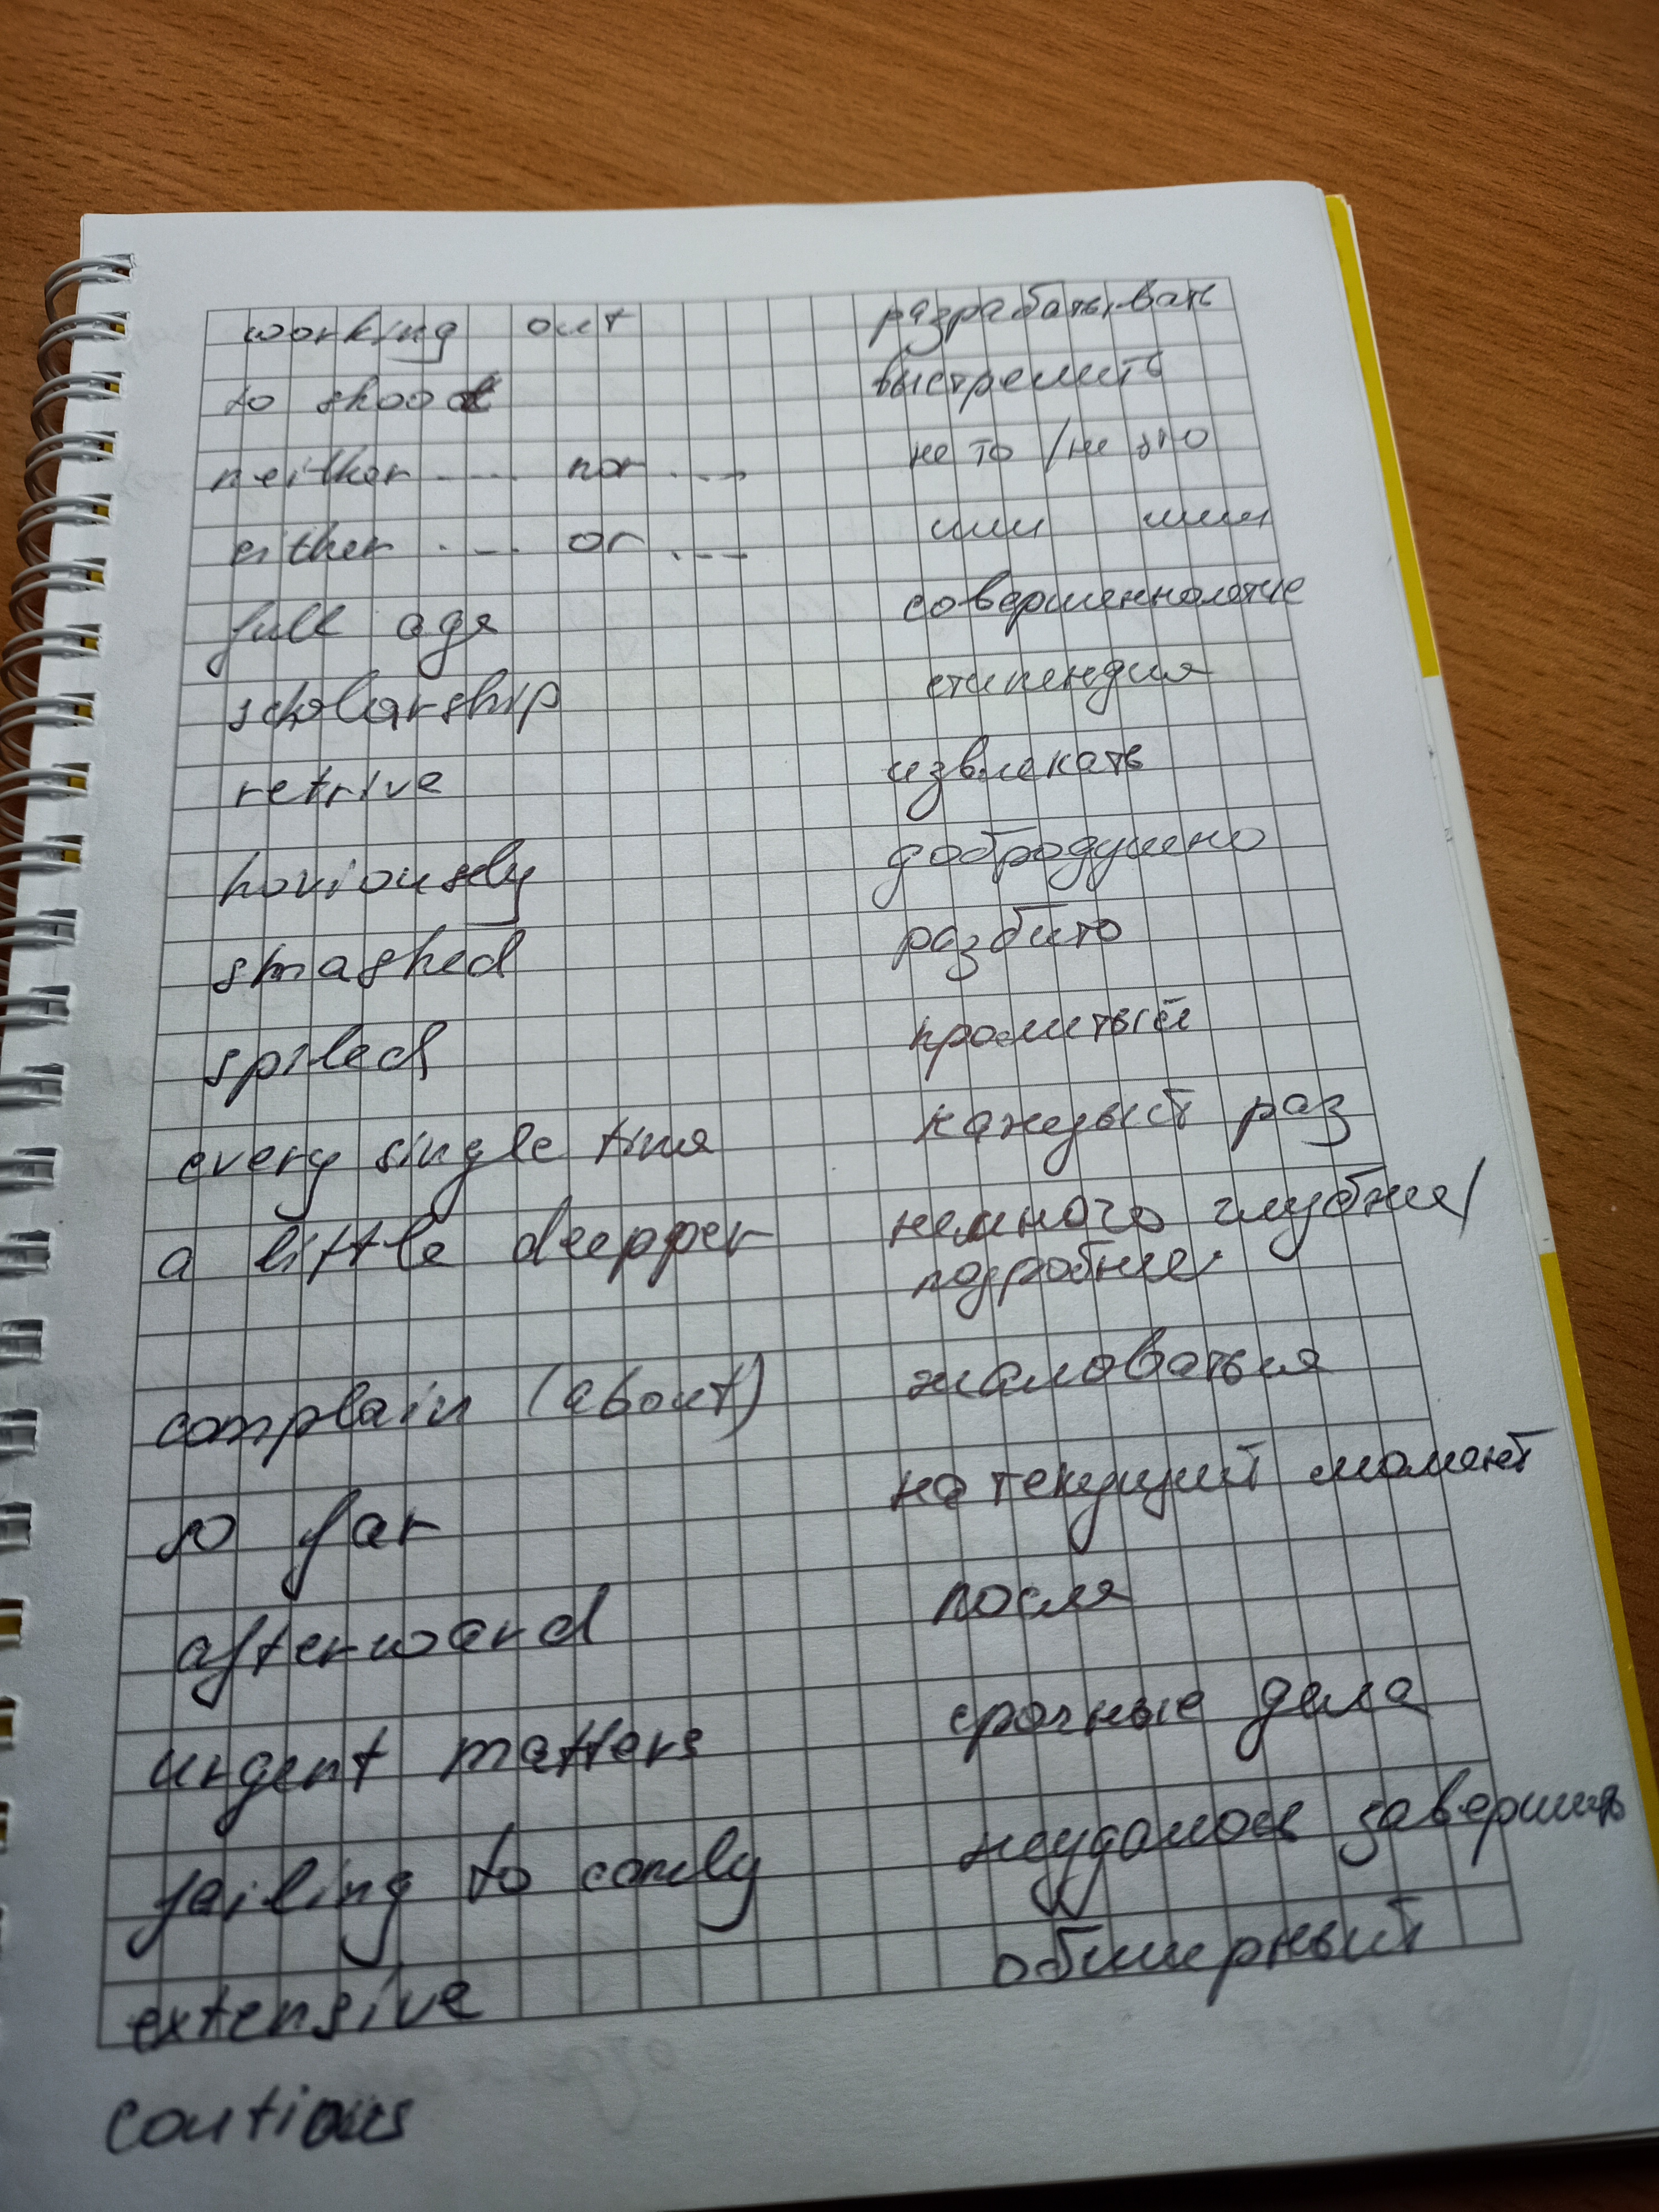 working out разрабатывать
to shoot выстрелить
neither ... nor ... не то / не это
either ... or ... или или
full age совершеннолетие
scholarship стипендия
retrive извлекать
hoviously добродушено
smashed разбито
spiled пролитый
every single time каждый раз
a little deepper немного глубже/
подробнее
complain (about) жаловаться
so far на текущий момент
afterward после
urgent matters срочные дела
failing to comly неудалось завершить
extensive обширный
coutious